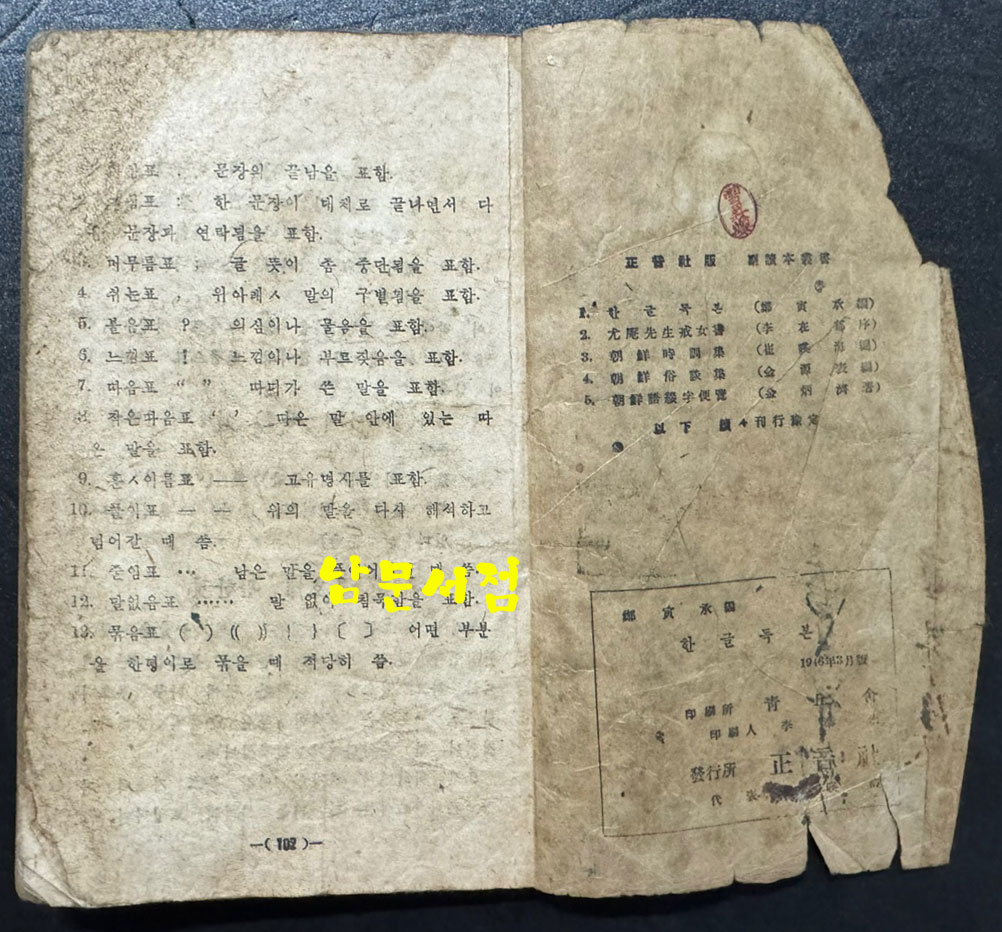 문장의 끝남을 표함.
한 문장이 대체로 끝나면서 다
문장과 연락됨을 표함.
머무름표 ; 글 뜻이 좀 중단됨을 표함.
4. 쉬는표 , 위아레ㅅ 말의 구별됨을 표함.
5. 물음표 ? 의심이나 물음을 표함.
6. 느낌표 ! 느낌이나 부르짖음을 표함.
7. 따옴표 “ ” 따다가 쓴 말을 표함.
작은따옴표 ‘ ’ 따온 말 안에 있는 따
온 말을 표함.
9. 홀ㅅ이름표 —— 고유명사를 표함.
10. 풀이표 — — 위의 말을 다시 해석하고
넘어간 데 씀.
11. 줄임표 … 남은 말을 데 씀.
12. 말없음표 …… 말 없이 표함.
13. 묶음표 ( ) (( )) { } 〔 〕 어떤 부분
을 한덩이로 묶을 떼 적당히 씀.
—( 102 )—
남문서점
正音社版 副讀本叢書
1. 한글독본 (鄭寅承編)
2. 尤庵先生戒女書 (李在郁序)
3. 朝鮮時調集 (崔瑛海編)
4. 朝鮮俗談集 (金源表編)
5. 朝鮮語綴字便覽 (金炳濟著)
以下 續々刊行豫定
鄭寅承編
한글독본
1946年3月版
印刷所 靑
印刷人 李
發行所 正音社
代 張